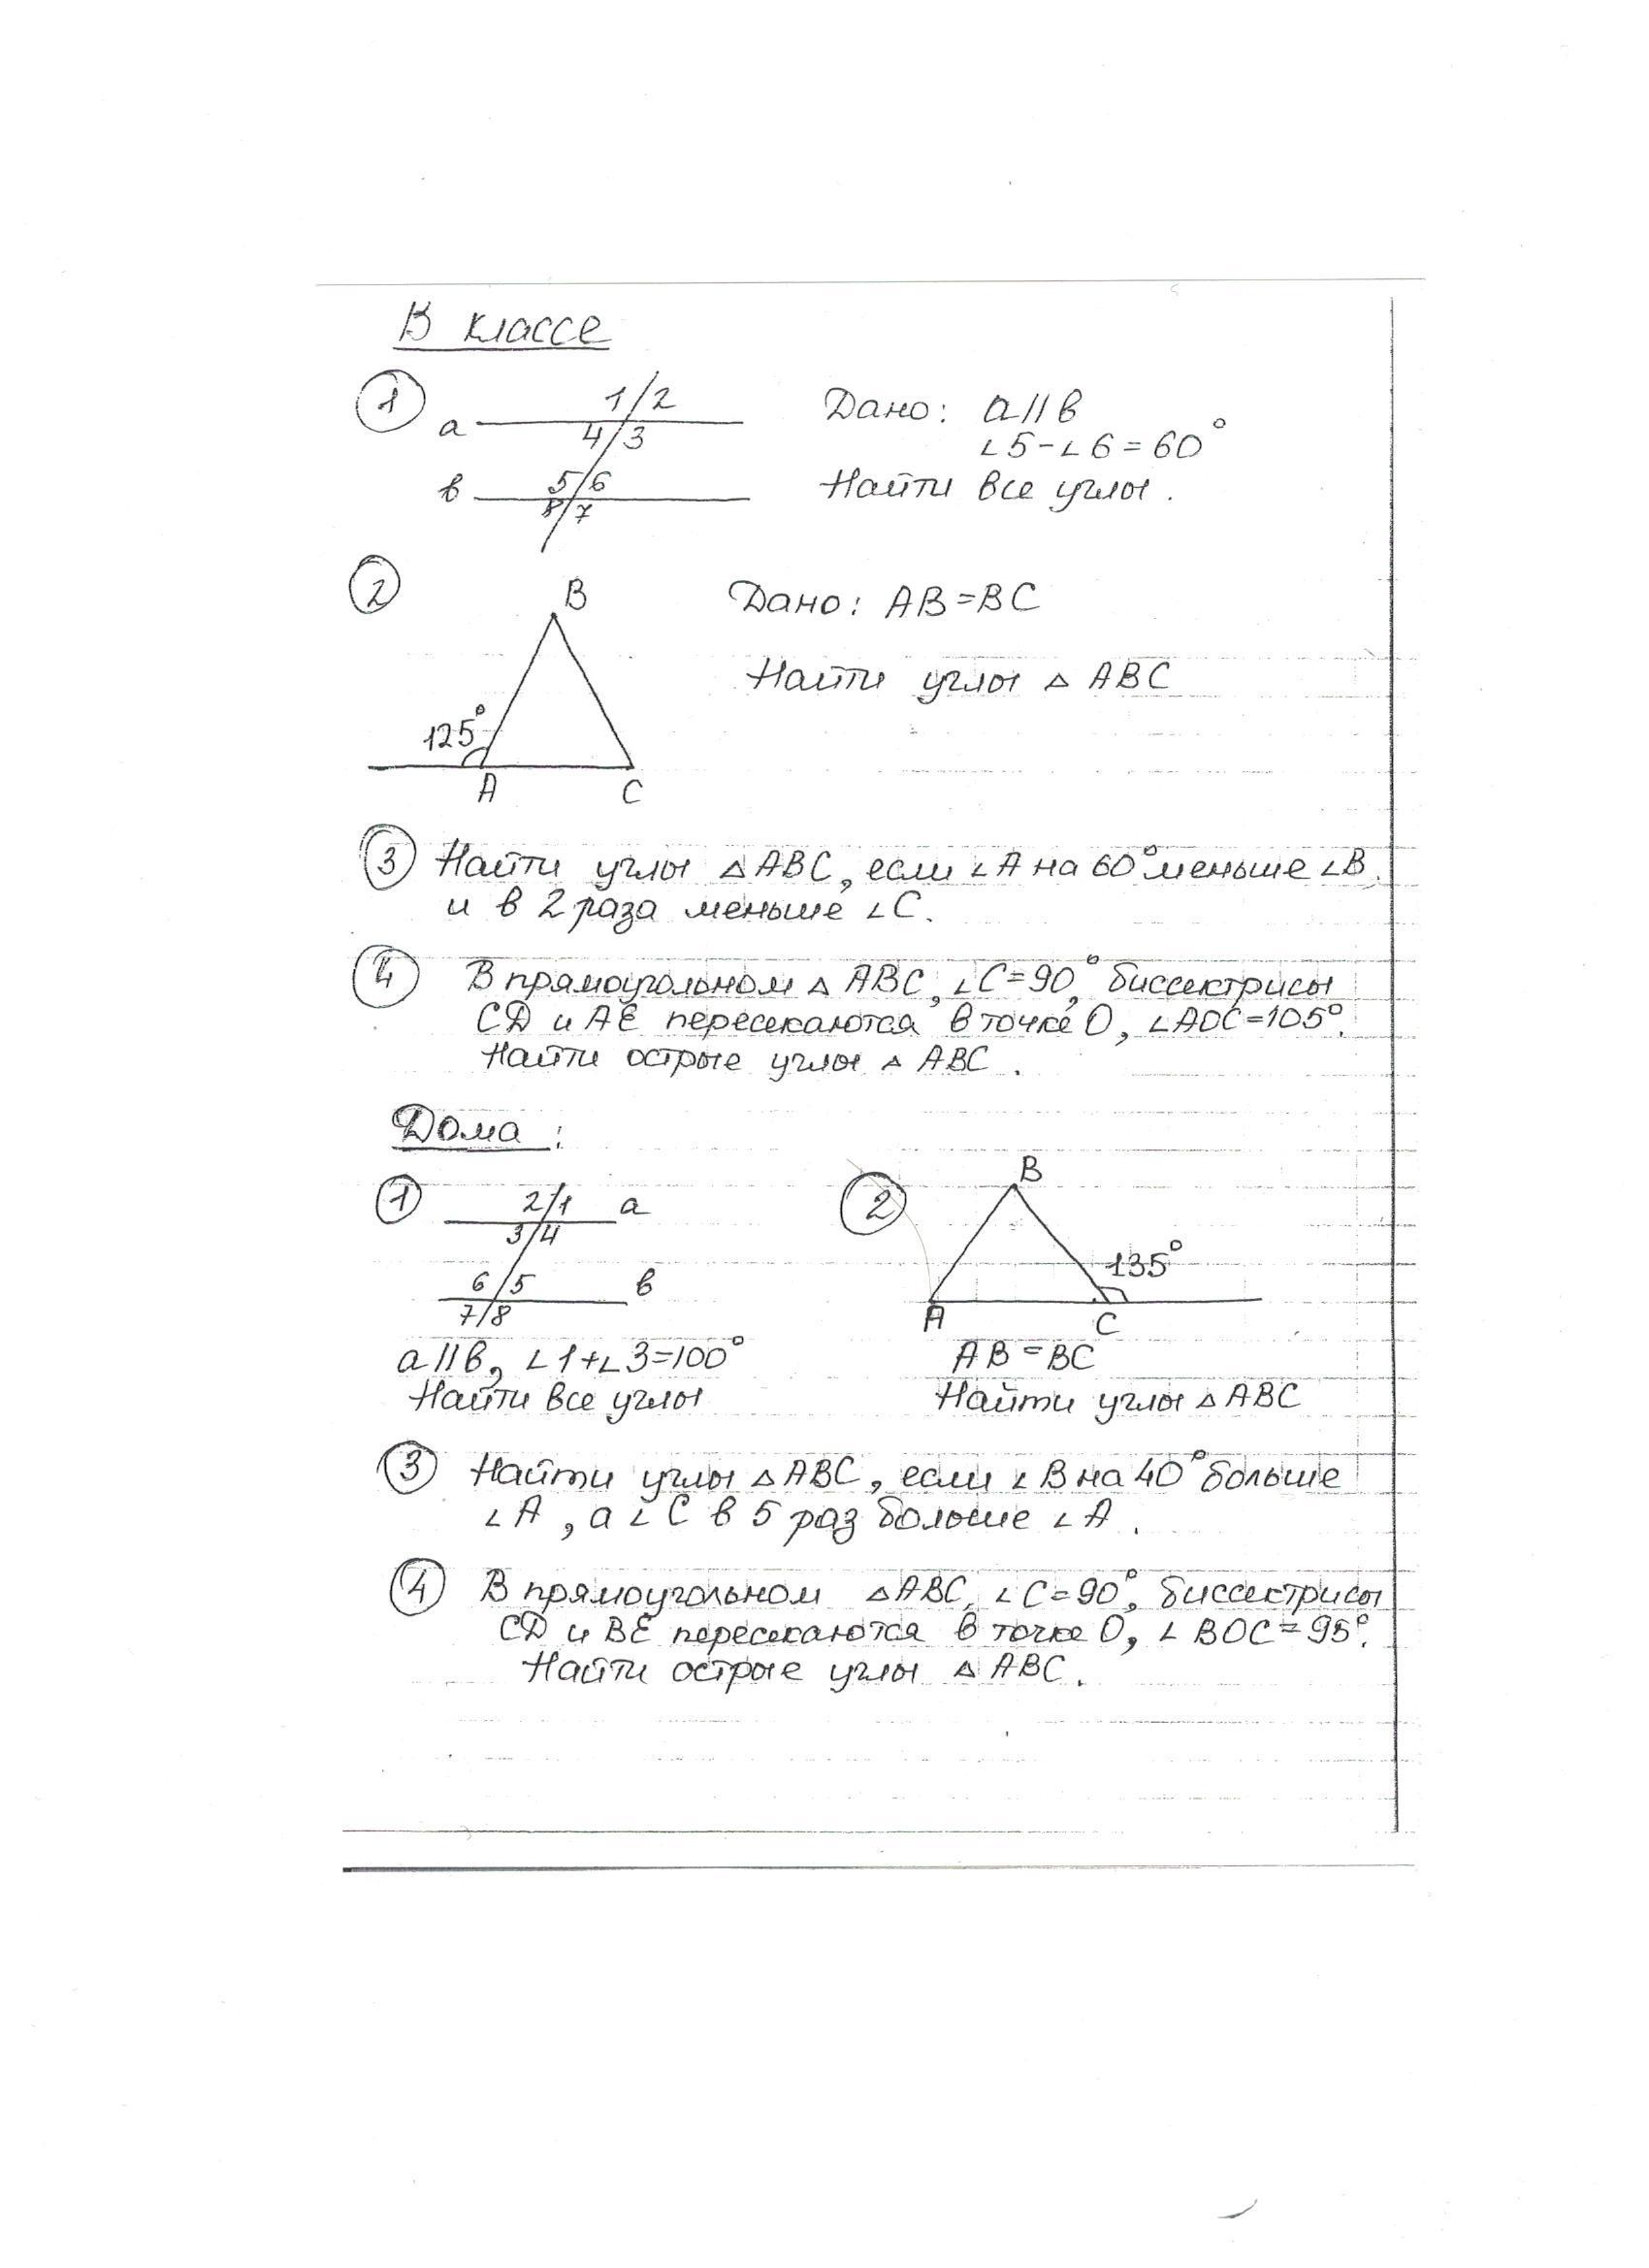 В классе
1
1 2
a
4 3
5 6
b
8 7
Дано: a∥b
∠5-∠6=60°
Найти все углы.
2
B
125°
A
C
Дано: AB=BC
Найти углы △ ABC
3 Найти углы △ABC, если ∠A на 60° меньше ∠B
и в 2 раза меньше ∠C.
4 В прямоугольном △ ABC, ∠C=90°, биссектрисы
CD и AE пересекаются в точке O, ∠AOC=105°.
Найти острые углы △ ABC.
Дома:
1
2 1 a
3 4
6 5 b
7 8
a∥b, ∠1+∠3=100°
Найти все углы
2
B
135°
A
C
AB=BC
Найти углы △ABC
3 Найти углы △ABC, если ∠B на 40° больше
∠A, а ∠C в 5 раз больше ∠A.
4 В прямоугольном △ABC, ∠C=90°, биссектрисы
CD и BE пересекаются в точке O, ∠BOC=95°.
Найти острые углы △ ABC.